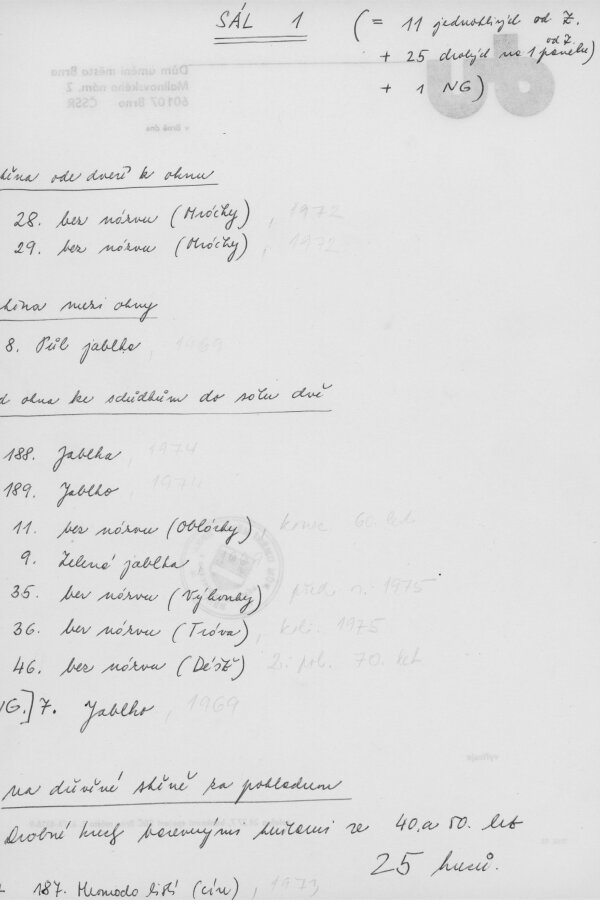 SÁL 1 (= 11 jednotlivých od Z.
+ 25 drobných na 1 panelu) od Z.
+ 1 NG)
Dům umění města Brna
Malinovského nám. 2
601 07 Brno ČSSR
v Brně dne
stěna ode dveří k oknu
28. bez názvu (Mráčky), 1972
29. bez názvu (Mráčky), 1972
stěna mezi okny
8. Půl jablka, 1969
od okna ke schůdkům do sálu dvě
188. Jablka, 1974
189. Jablko, 1974
11. bez názvu (Oblázky), konec 60. let
9. Zelená jablka
35. bez názvu (Výhonky), před r. 1975
36. bez názvu (Tráva), kol. 1975
46. bez názvu (Déšť) 2. pol. 70. let
NG.] 7. Jablko, 1969
vyřizuje
na dřevěné stěně za pokladnou
Drobné kresby barevnými tužkami ze 40. a 50. let
25 kusů.
187. Hromada listí (cín), 1973